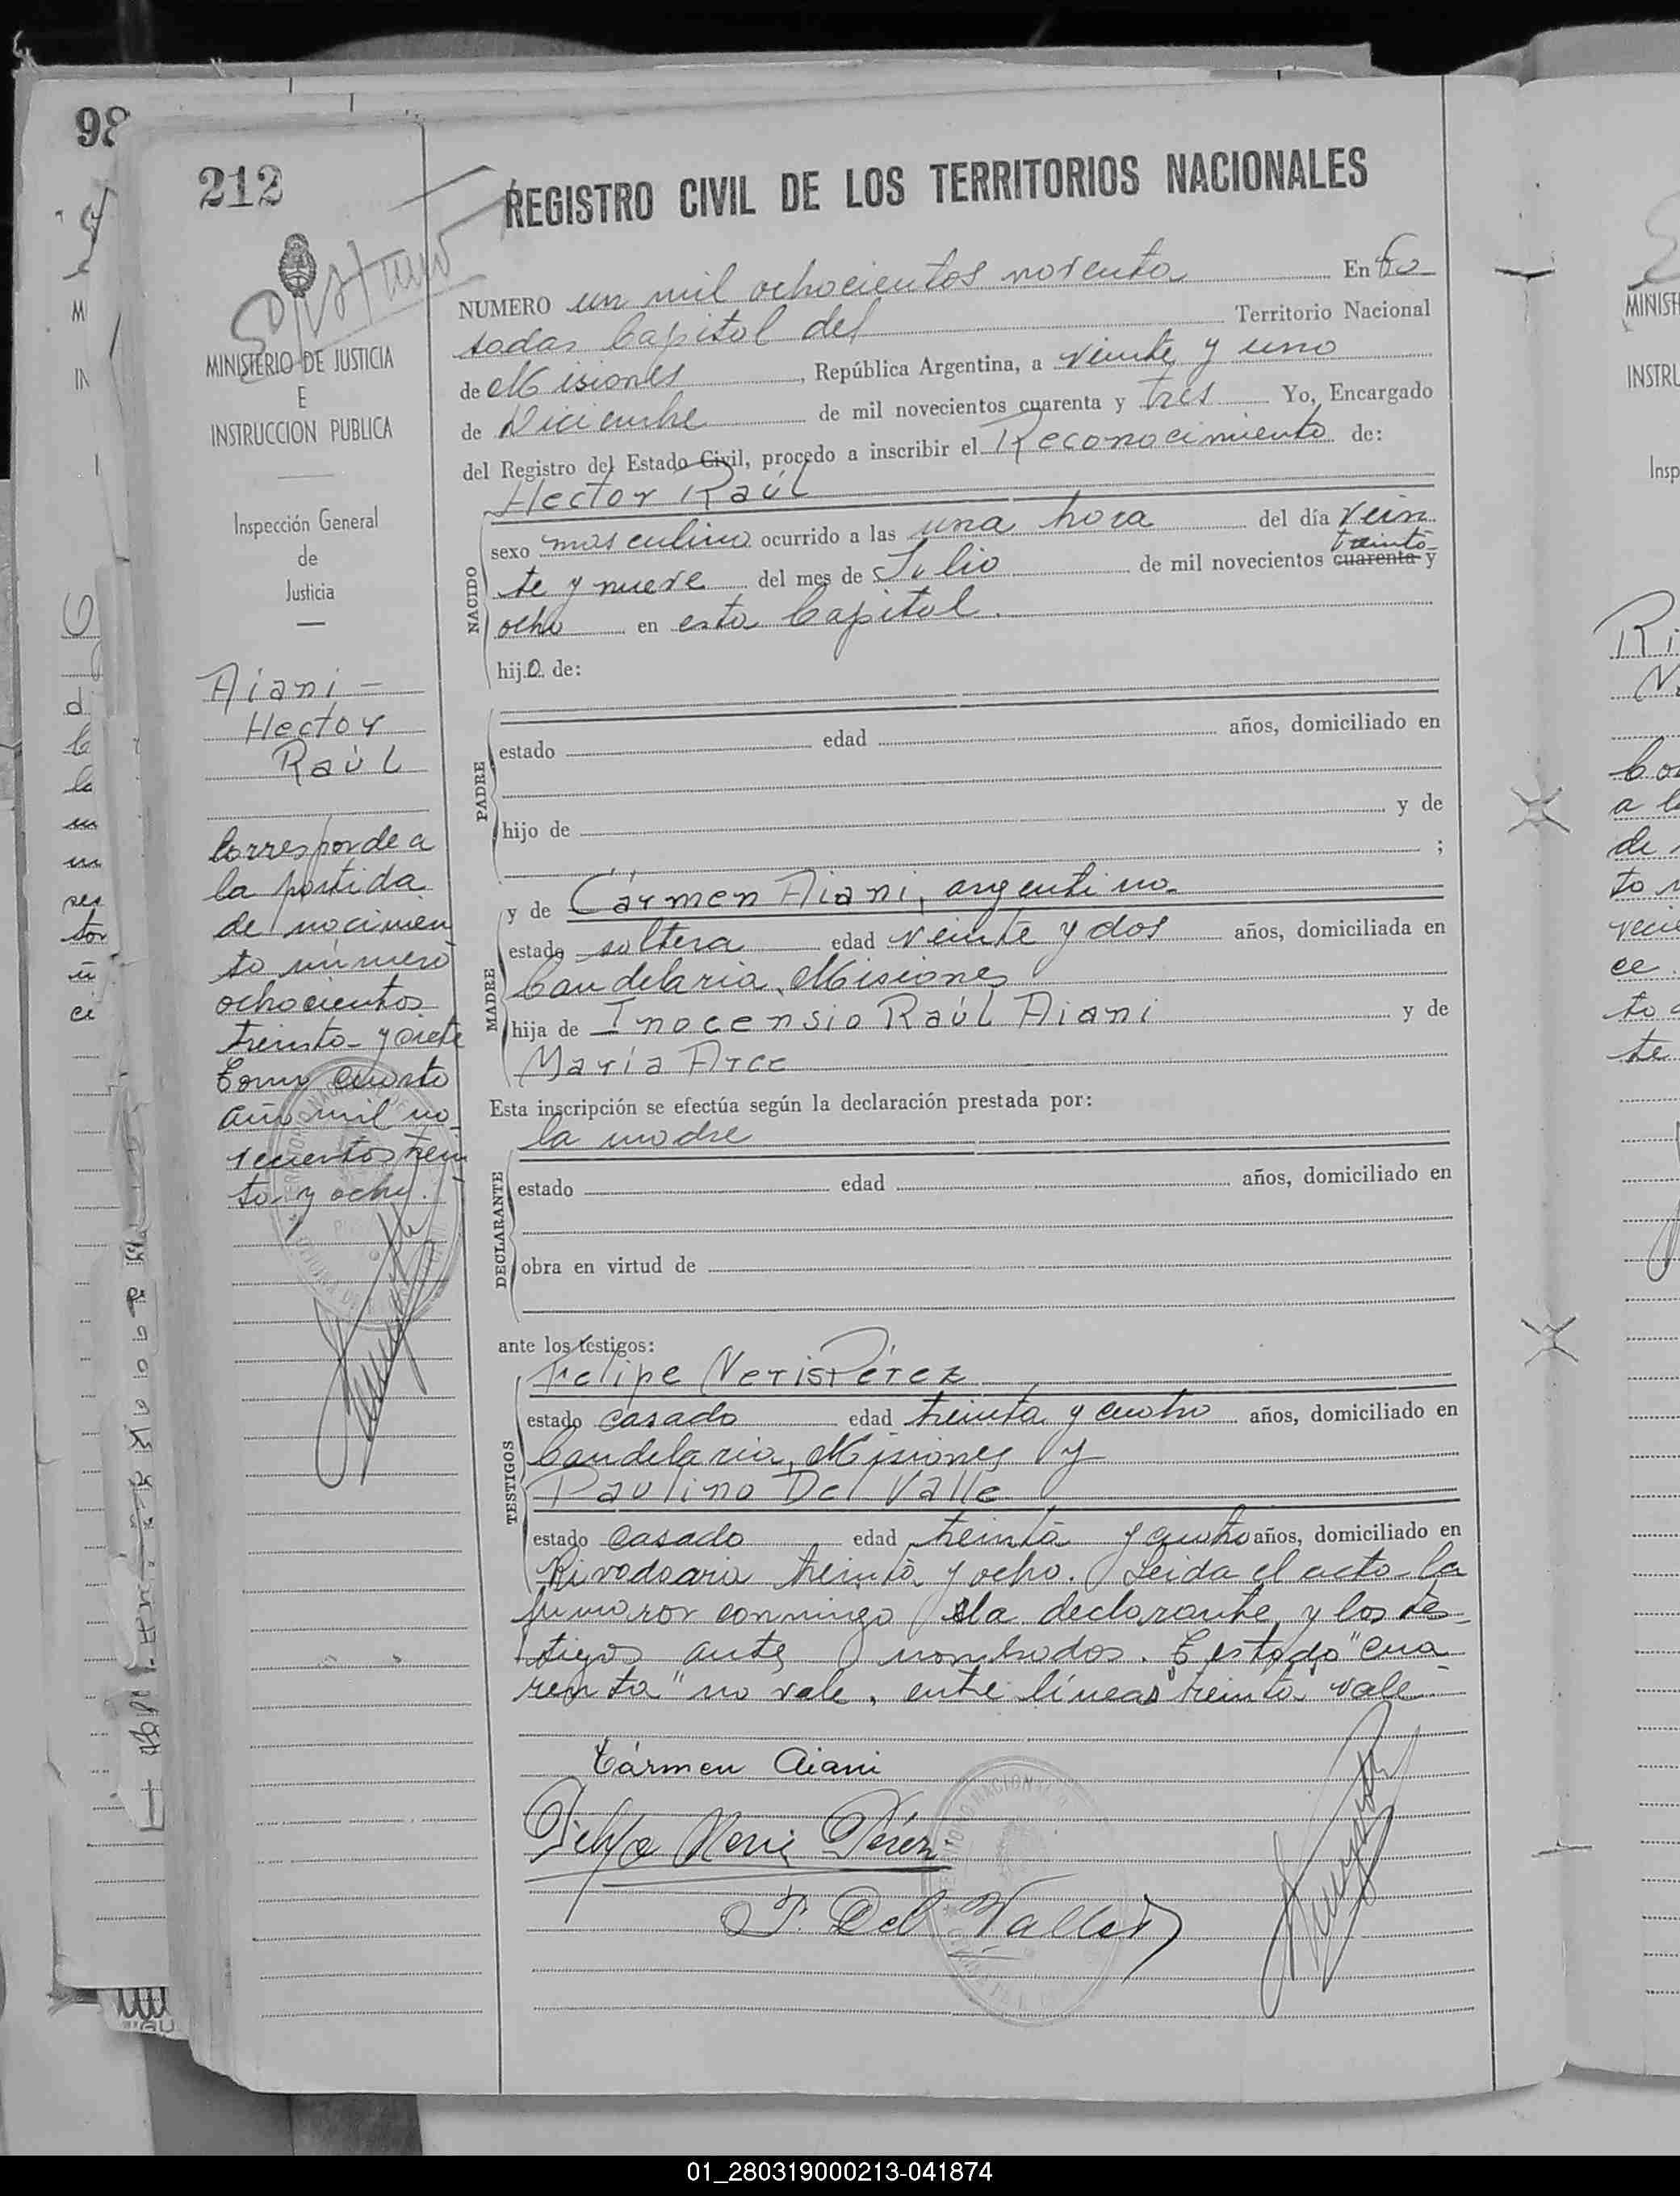 98
212
REGISTRO CIVIL DE LOS TERRITORIOS NACIONALES
MINISTERIO DE JUSTICIA
E
INSTRUCCION PUBLICA
Inspección General
de
Justicia
Aiani -
Hector
Raúl
Corresponde a
la partida
de nacimien
to número
ochocientos
treinta y siete
Tomo cuarto
año mil no-
vecientos trein
ta y ocho.
NUMERO un mil ochocientos noventa En Po
sadas Capital del Territorio Nacional
de Misiones, República Argentina, a veinte y uno
de Diciembre de mil novecientos cuarenta y tres Yo, Encargado
del Registro del Estado Civil, procedo a inscribir el Reconocimiento de:
Hector Raúl
NACIDO
sexo masculino ocurrido a las una hora del día vein
treinta
te y nueve del mes de Julio de mil novecientos cuarenta y
ocho en esta Capital.
hijo de:
PADRE
estado edad años, domiciliado en
hijo de y de
;
MADRE
y de Cármen Aiani, argentina
estado soltera edad veinte y dos años, domiciliada en
Candelaria, Misiones
hija de Inocensio Raúl Aiani y de
María Arce
Esta inscripción se efectúa según la declaración prestada por:
la madre
DECLARANTE
estado edad años, domiciliado en
obra en virtud de
ante los testigos:
TESTIGOS
Felipe Neris Pérez
estado casado edad treinta y cuatro años, domiciliado en
Candelaria, Misiones y
Paulino Del Valle
estado casado edad treinta y cuatro años, domiciliado en
Rivadavia treinta y ocho. Leida el acta la
firmaron conmigo la declarante y los tes-
tigos antes nombrados. Testado "cua
renta" no vale, entre líneas "treinta" vale
Cármen Aiani
Felipe Neris Pérez
P. Del Valle
MINIST
INSTRU
Insp
01_280319000213-041874